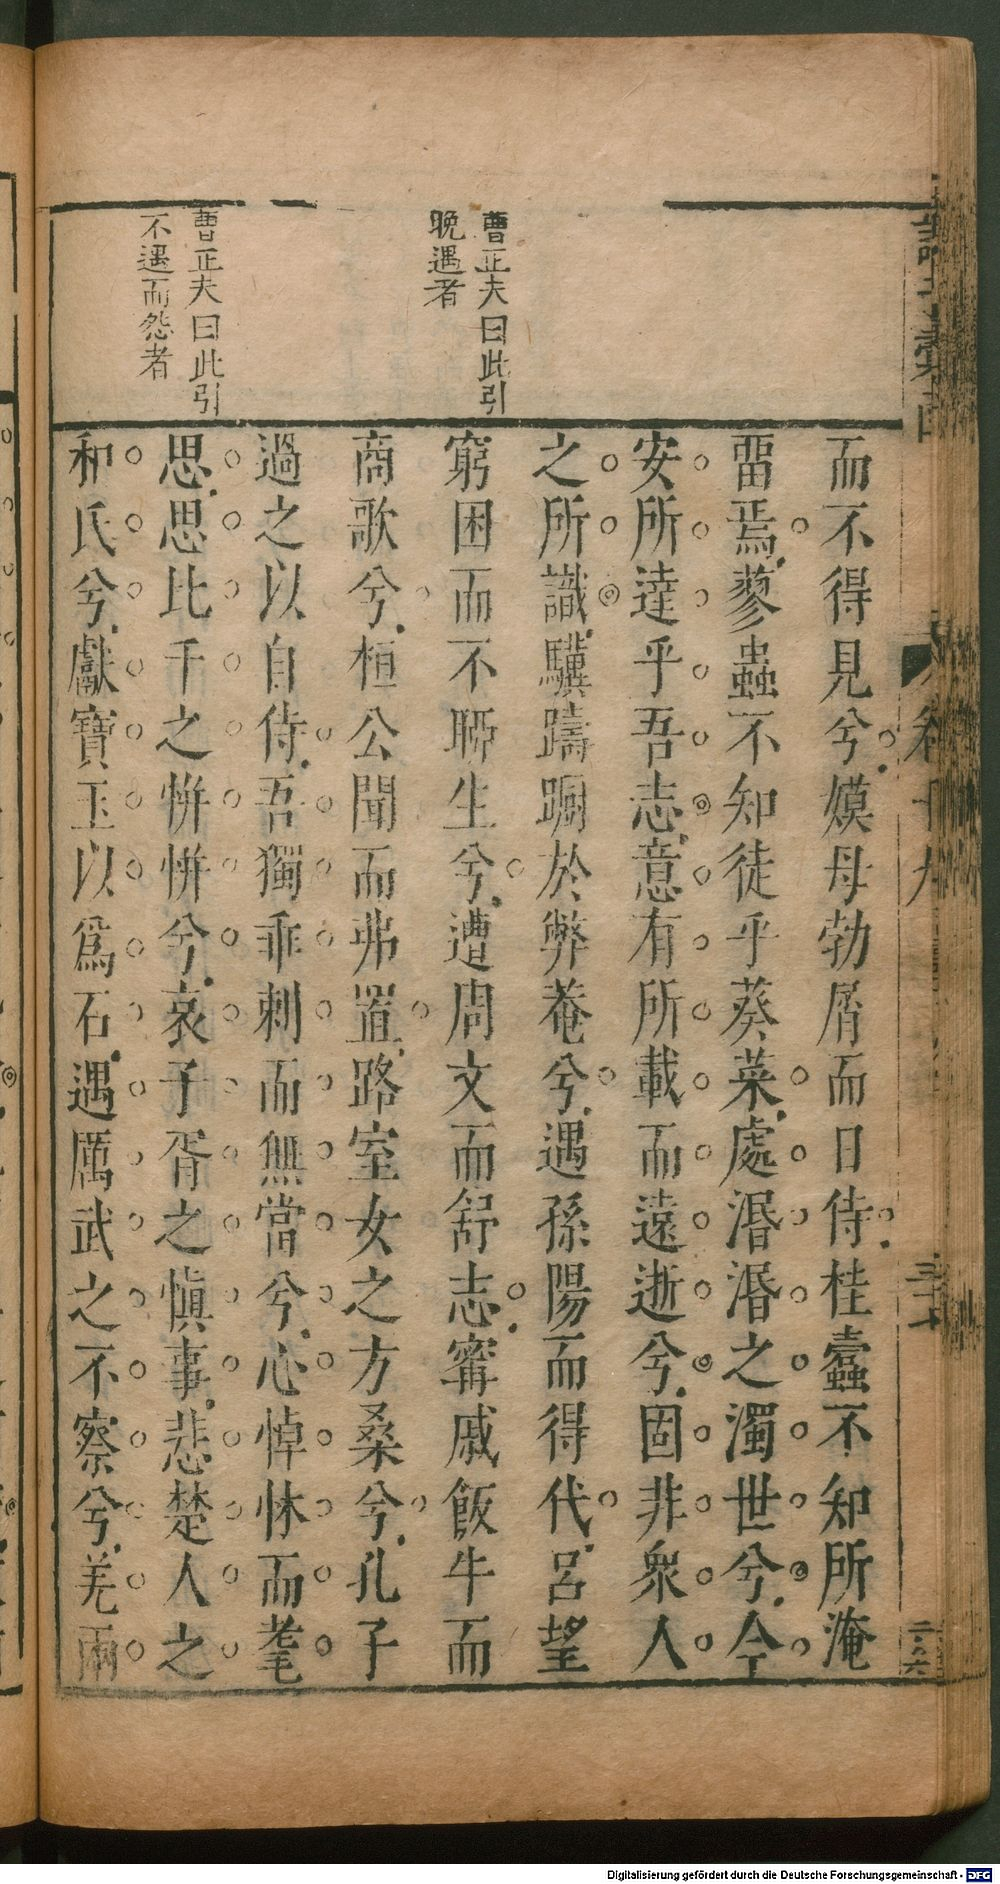 曹正夫曰此引
晚遇者
曹正夫曰此引
不遇而怨者
而不得見兮嫫母勃屑而日侍桂蠹不知所淹
畱焉蓼蟲不知徒乎葵菜處湣湣之濁世兮今
安所達乎吾志意有所載而遠逝兮固非衆人
之所識驥躊躕於弊菴兮遇孫陽而得代呂望
窮困而不聊生兮遭周文而舒志甯戚飯牛而
商歌兮桓公聞而弗置路室女之方桑兮孔子
過之以自侍吾獨乖剌而無當兮心悼怵而耄
思思比干之恲恲兮哀子胥之慎事悲楚人之
和氏兮獻寶玉以爲石遇厲武之不察兮羌兩
Digitalisierung gefördert durch die Deutsche Forschungsgemeinschaft - DFG